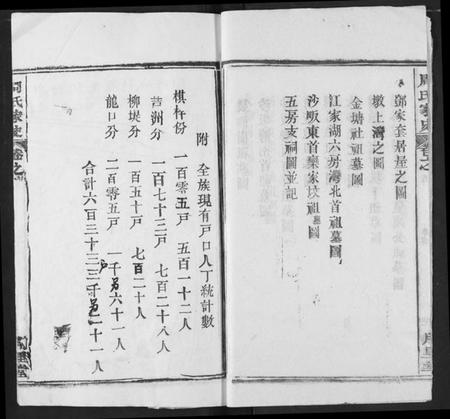 周氏家史
鄧家套居屋之圖
墩上灣之圖
金塘社祖墓圖
江家湖六房灣北首祖墓圖
沙畈東首欒家坟祖墓圖
五房支祠圖並記
附 全族現有戶口人丁統計數
棋杵份 一百零五戶 五百一十二人
芦洲分 一百七十三戶 七百二十八人
柳堤分 一百五十戶 七百二十人
龍口分 二百零五戶 一千 六十一人
合計六百三十三戶
周氏家史 卷之